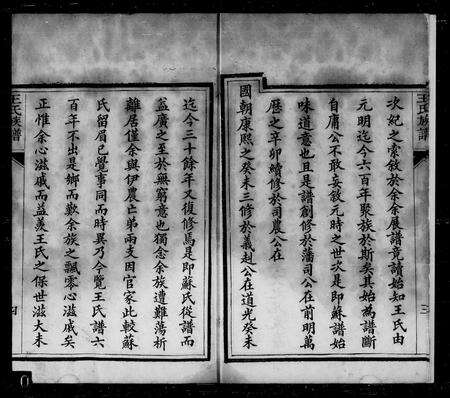 次妃之索敘於余余展譜竟請始知王氏由
元明迄今六百年聚族於斯矣其始為譜斷
自庸公不敢妄敘元時之世次是即蘇譜始
味道意也且是譜創修於潘司公在前明萬
歷之辛卯續修於司農公在
國朝康熙之癸未三修於義赵公在道光癸未
迄今三十餘年又復修焉是即蘇氏從譜而
益廣之至於無窮意也獨念余族遭難蕩析
離居僅余與伊農亡弟兩支因官家此較蘇
氏留眉已覺事同而時異乃今覽王氏譜六
百年不出是鄉而歎余族之飄零心滋戚矣
正惟余心滋戚而益羨王氏之保世滋大未
王氏族譜
三
王氏族譜
四